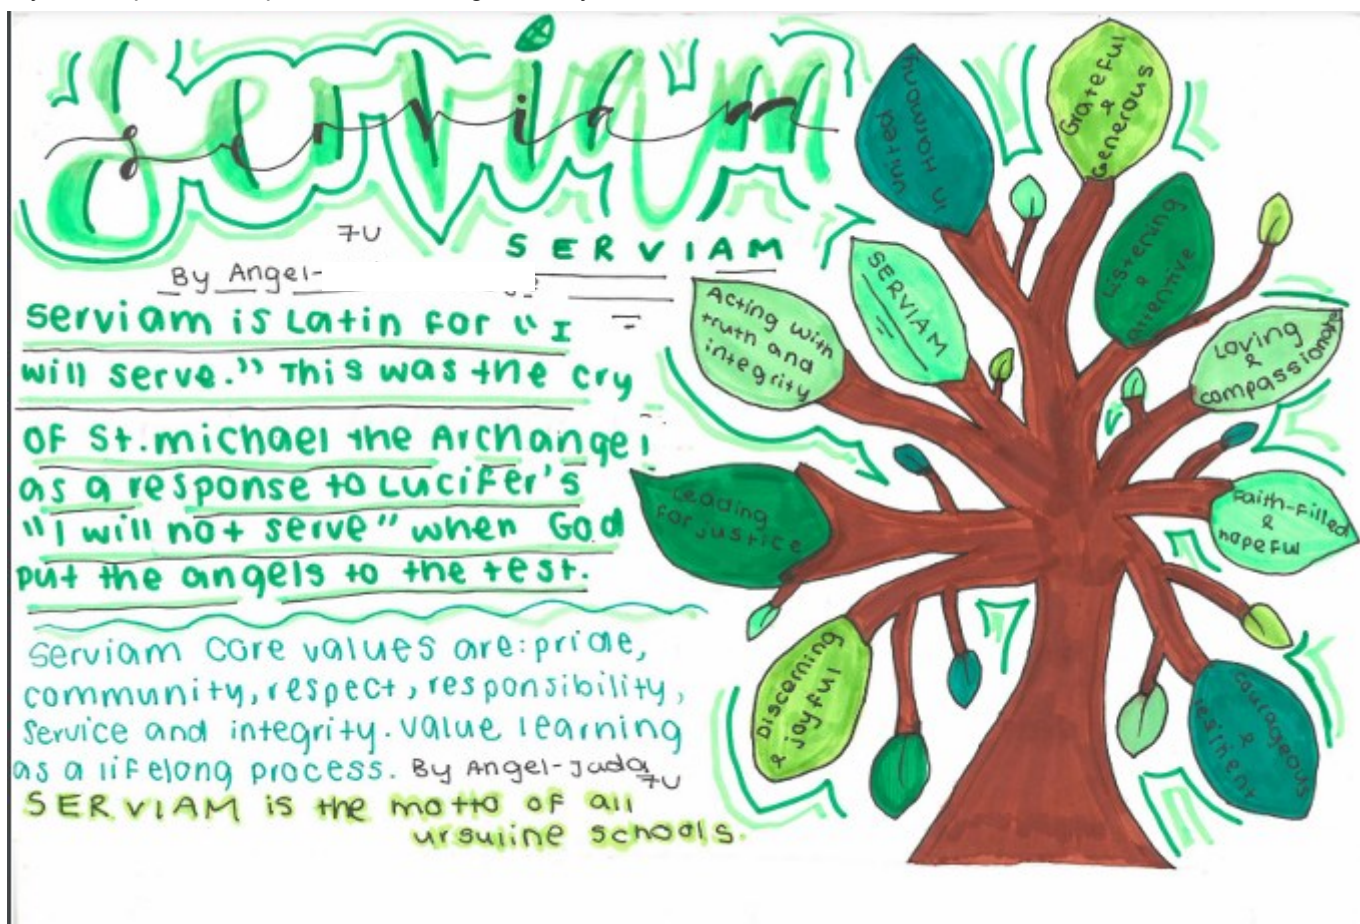 Serviam
serviam
7U
SERVIAM
By Angel-
Serviam is Latin for "I
will serve." This was the cry
of St.michael the Archangel
as a response to Lucifer's
"I will not serve" when God
put the angels to the test.
Serviam core values are: pride,
community, respect, responsibility,
Service and integrity. value learning
as a lifelong process. By Angel-Jada
7U
SERVIAM is the motto of all
ursuline schools.
united
in Harmony
Grateful
&
Generous
Listening
&
attentive
SERVIAM
Acting with
truth and
integrity
Loving
&
compassionate
Leading
for justice
Faith-filled
&
hopeful
Discerning
& joyful
courageous
&